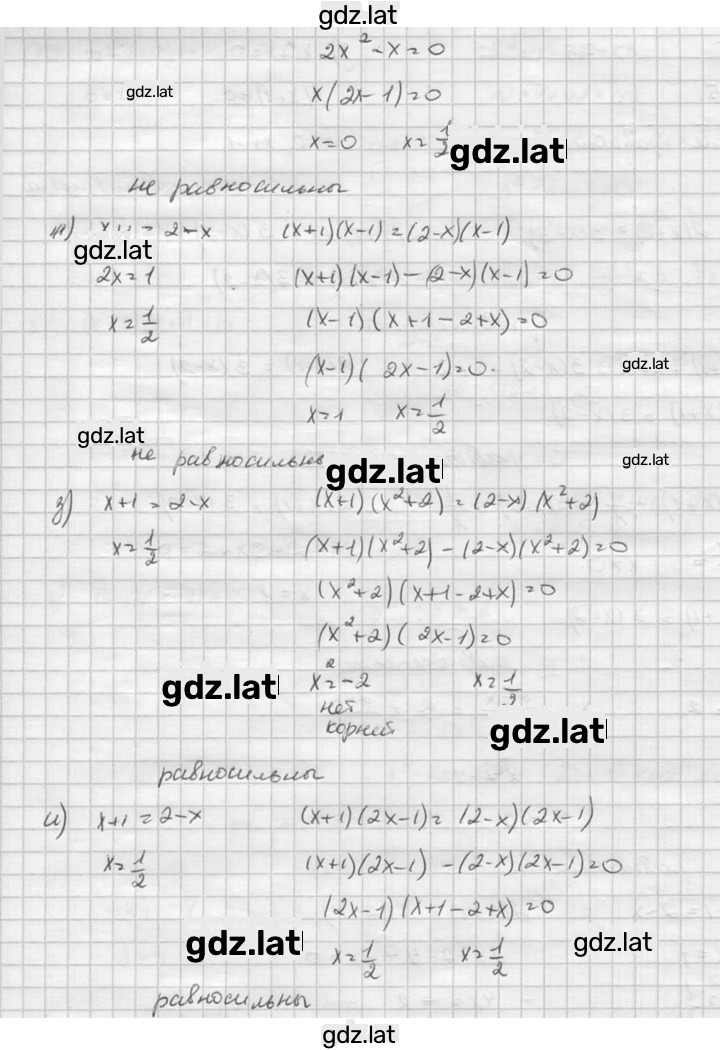 gdz.lat
2x² - x = 0
gdz.lat
x(2x-1)=0
x=0 x=1/2
gdz.lat
не равносильны
ж) x+1 = 2-x (x+1)(x-1)=(2-x)(x-1)
gdz.lat
2x=1 (x+1)(x-1)-(2-x)(x-1)=0
x=1/2 (x-1)(x+1-2+x)=0
(x-1)( 2x-1)=0.
gdz.lat
x=1 x=1/2
gdz.lat
не равносильны
gdz.lat
gdz.lat
з) x+1=2-x (x+1)(x²+2)=(2-x)(x²+2)
x=1/2 (x+1)(x²+2)-(2-x)(x²+2)=0
(x²+2)(x+1-2+x)=0
(x²+2)( 2x-1)=0
gdz.lat
x²=-2 x=1/2
нет
корней
gdz.lat
равносильны
и) x+1=2-x (x+1)(2x-1)=(2-x)(2x-1)
x=1/2 (x+1)(2x-1)-(2-x)(2x-1)=0
(2x-1)(x+1-2+x)=0
gdz.lat
gdz.lat
x=1/2 x=1/2
равносильны
gdz.lat